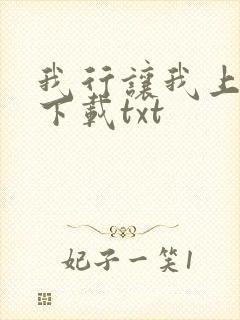 我行讓我上
下載txt
妃子一笑1